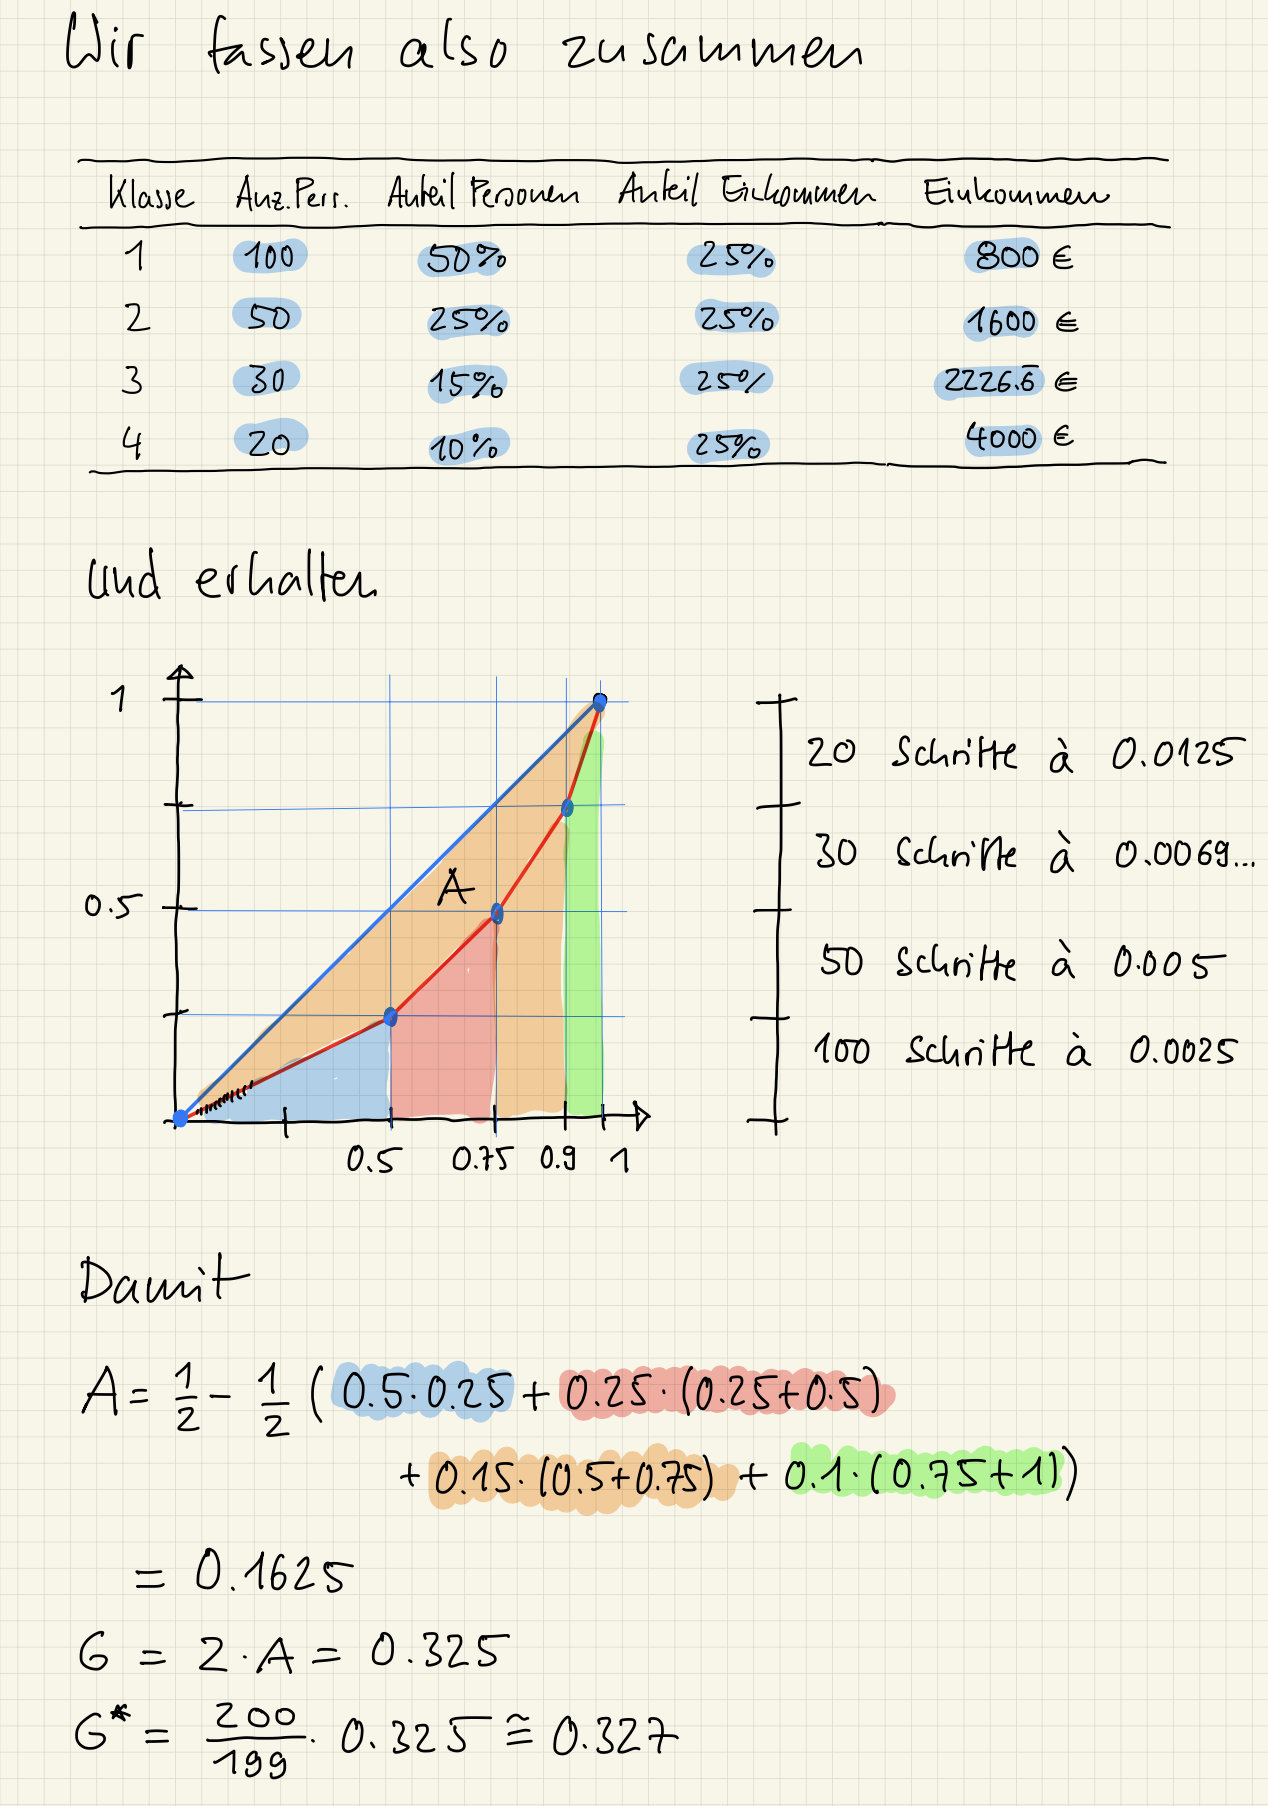 Wir fassen also zusammen
Klasse Anz. Pers. Anteil Personen Anteil Einkommen Einkommen
1 100 50% 25% 800 €
2 50 25% 25% 1600 €
3 30 15% 25% 2226.6̅ €
4 20 10% 25% 4000 €
und erhalten
1
0.5
A
0.5 0.75 0.9 1
20 Schritte à 0.0125
30 Schritte à 0.0069...
50 Schritte à 0.005
100 Schritte à 0.0025
Damit
A = 1/2 - 1/2 (0.5·0.25 + 0.25·(0.25+0.5)
+ 0.15·(0.5+0.75) + 0.1·(0.75+1))
= 0.1625
G = 2·A = 0.325
G* = 200/199 · 0.325 ≅ 0.327